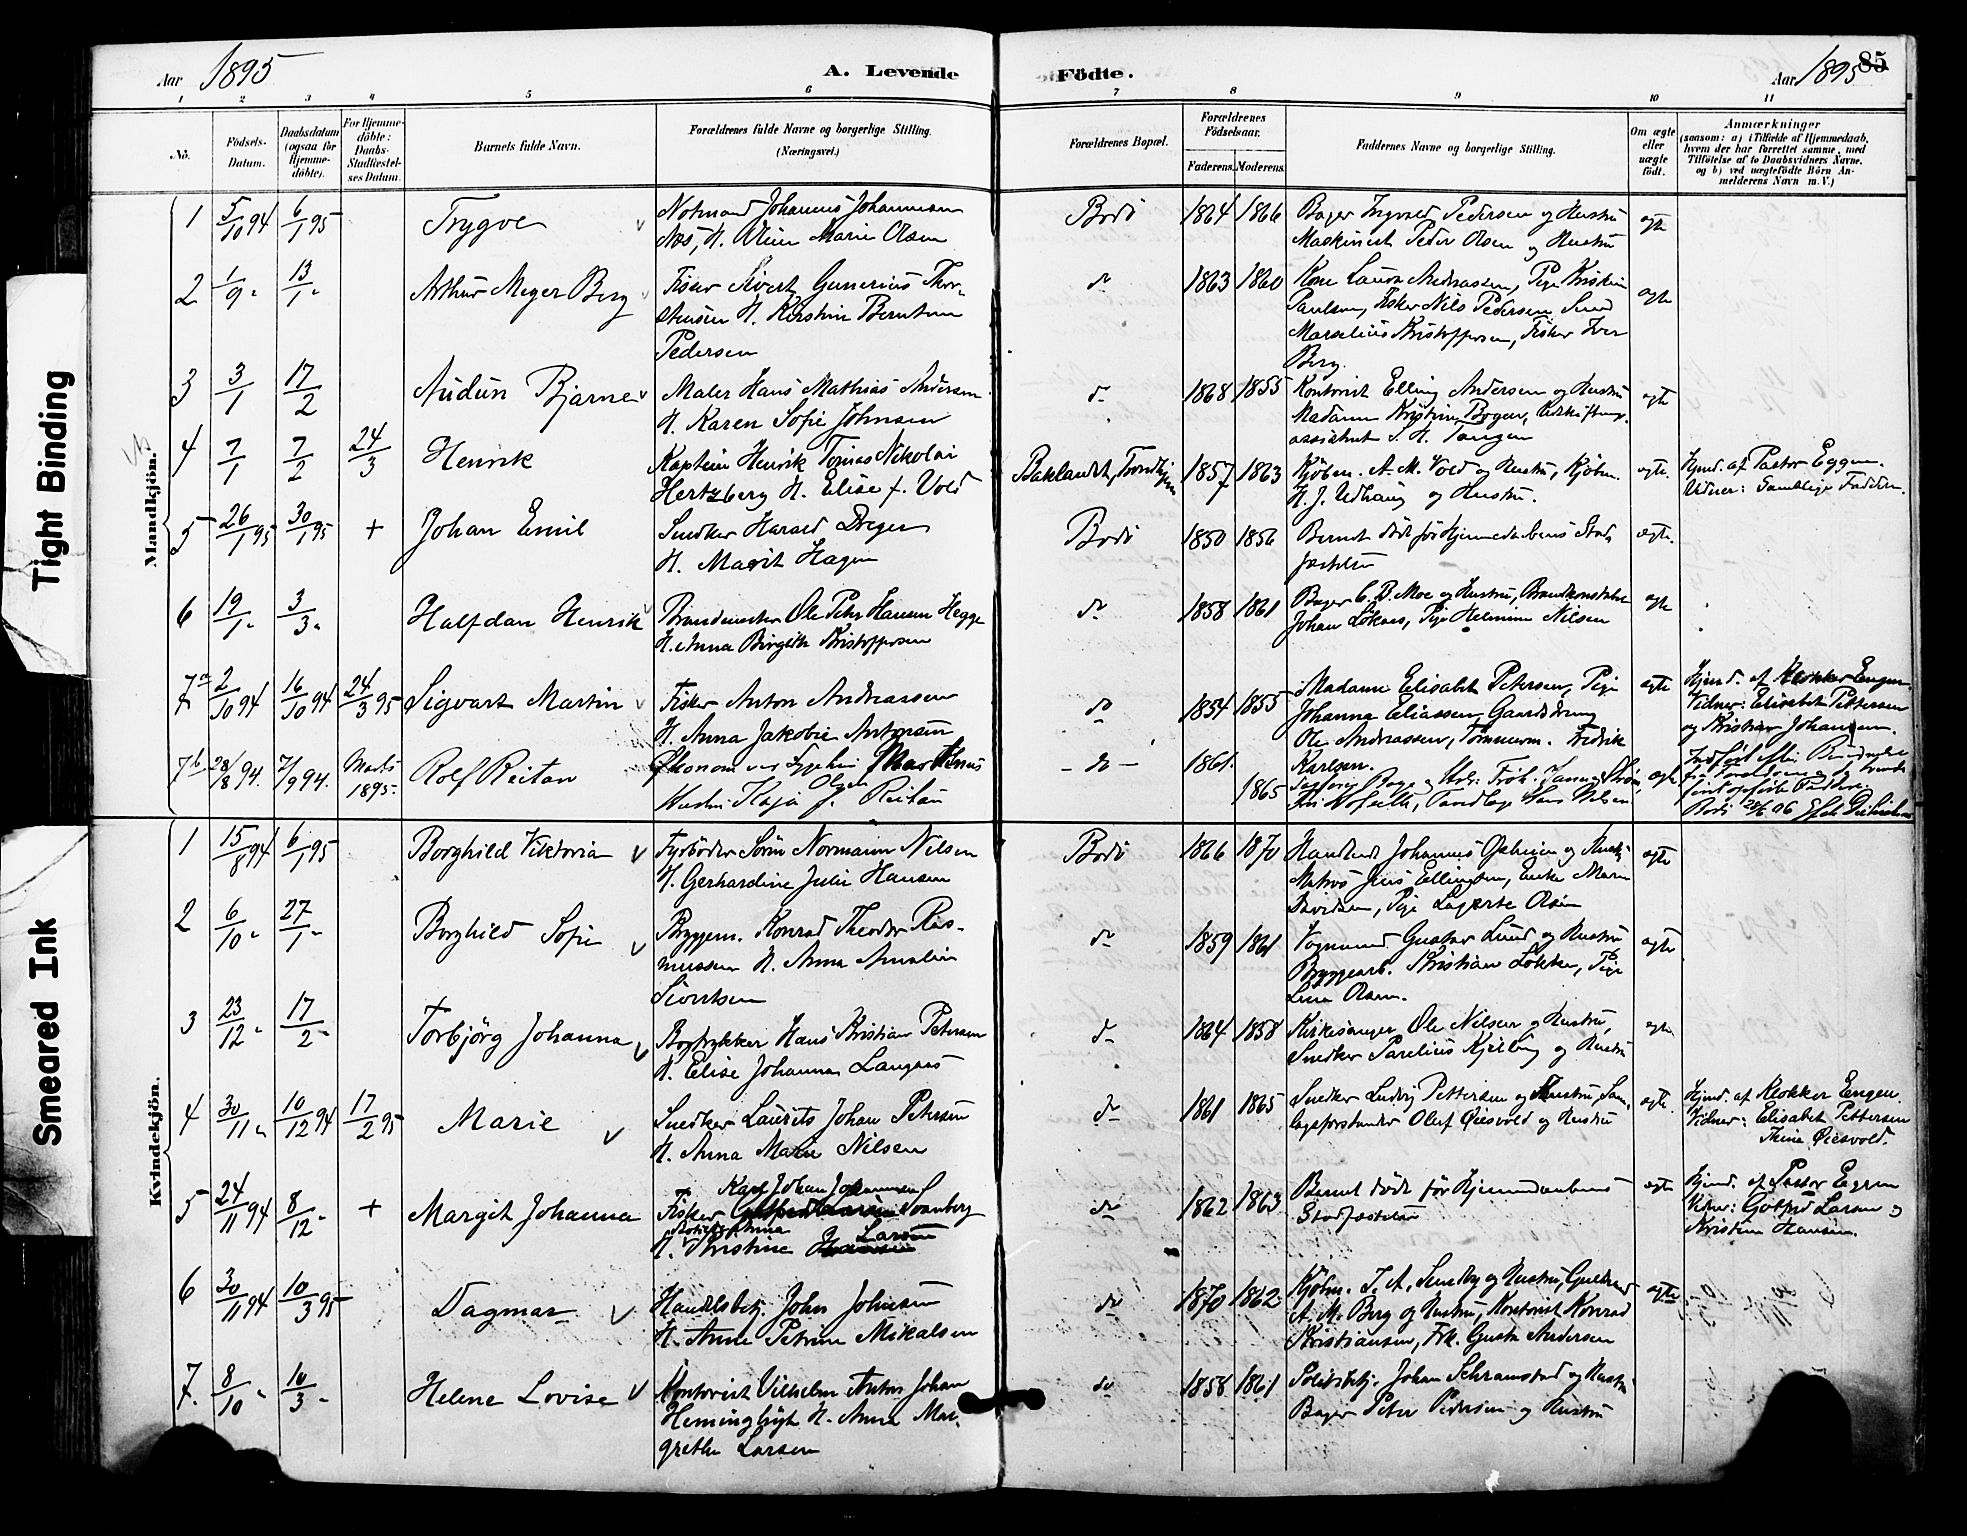 Aar 1895
A. Levende
Födte.
Aar 1895
85
1 2 3 4 5 6 7 8 9 10 11
No.
Födsels-
Datum.
Daabsdatum
(ogsaa for
Hjemme-
döbte).
For Hjemme-
döbte:
Daabs-
Stadfæstel-
ses Datum.
Barnets fulde Navn.
Forældrenes fulde Navne og borgerlige Stilling.
(Næringsvei.)
Forældrenes Bopæl.
Forældrenes
Födselsaar.
Faderens. Moderens.
Faddernes Navne og borgerlige Stilling.
Om ægte
eller
uægte
födt.
Anmærkninger
(saasom: a) i Tilfælde af Hjemmedaab,
hvem der har forrettet samme, med
Tilföielse af to Daabsvidners Navne,
og b) ved uægtefödte Börn An-
melderens Navn m. V.)
Tight Binding
Smeared Ink
Mandkjön.
1 5/10 94 6/1 95 Trygve Johannes Johannesen
Marie Olsen
Bodö 1864 1866 Bager Ingvald Pedersen og Hustru
Maskinist Peder Olsen og Hustru
ægte
2 1/9 " 13/1 " Arthur Meyer Berg Fisker Sivert Gunerius Thor-
stensen H. Kirstine Berntine
Pedersen
do 1863 1860 Kone Laura Andreassen, Pige Kristine
Paulsen, Fisker Nils Pedersen Sund
Marselius Kristoffersen, Fisker Iver
Berg.
ægte
3 3/1 17/2 Audun Bjarne Maler Hans Mathias Andersen
H. Karen Sofie Johnsen
do 1868 1855 Kontorist Elling Andersen og Hustru
Madame Kristine Bogen, Udskiftnings
assistent S. H. Tangen
ægte
4 7/1 7/2 24/3 Henrik Kaptein Henrik Tomas Nikolai
Hertzberg H. Elise f. Vold
Baklandet, Trondhjem 1857 1863 Kjöbm. A. M. Vold og Hustru, Kjöbm.
H. J. Udhaug og Hustru.
ægte. Hjmd. af Pastor Eggen.
Vidner: Samtlige Faddere.
5 26/1 95 30/1 95 + Johan Emil Snedker Harald Dreyer
H. Marit Hagen
Bodö 1850 1856 Barnet död för Hjemmedaabens Stad-
fæstelse
ægte.
6 19/1 " 3/3 " Halfdan Henrik Brandmester Ole Peter Hansen Hegge
H. Anna Birgitte Kristoffersen
do 1858 1861 Bager C. D. Moe og Hustru, Brandkonstabel
Johan Lökaas, Pige Helmine Nilsen
ægte
7a 2/10 94 16/10 94 24/3 95 Sigvart Martin Fisker Anton Andreassen
H. Anna Jakobie Antonsen
do 1854 1855 Madame Elisabet Petersen, Pige
Johanna Eliassen, Gaardsdreng
Ole Andreassen, Tömmerm. Fredrik
Karlsen.
ægte Hjmd. af Klokker Engen.
Vidner: Elisabet Pettersen
og Kristian Johansen.
7b 28/8 94. 7/9 94. Marts
1895. Rolf Reitan Økonom Martinus
Olsen
Hustru Kaja f. Reitan
- do - 1861.
1865
ægte
Kvindekjön.
1 15/8 94 6/1 95 Borghild Viktoria Fyrböder Sörin Normann Nilsen
H. Gerhardine Julie Hansen
Bodö 1866 1870 Johannes og Hustru
Matros Jens Ellingsen, Enke Maren
Davidsen, Pige Lagerte Olsen
ægte
2 6/10 " 27/1 " Borghild Sofie Byggem. Konrad Theodor Ras-
mussen H. Anna Amalie
Sivertsen
do 1859 1861 Vognmand Gustav Lund og Hustru
Bryggearb. Kristian Lökke, Pige
Lina Olsen.
ægte
3 23/12 " 17/2 " Torbjörg Johanna Bogtrykker Hans Kristian Petersen
H. Elise Johanna Langaas
do 1864 1858 Kirkesanger Ole Nilsen og Hustru,
Snedker Parelius Kjelling og Hustru
ægte
4 30/11 " 10/12 94 17/2 95 Marie Snedker Laurits Johan Petersen
H. Anna Marie Nilsen
do 1861 1865 Snedker Ludvig Pettersen og Hustru, Sam-
lagsforstander Oluf Øiesvold og Hustru
ægte. Hjmd. af Klokker Engen.
Vidner: Elisabet Pettersen
Thine Øiesvold.
5 24/11 94 8/12 " + Margit Johanna Karl Johan Johannessen
Fisker Sannberg
H. Kristine Larsen
do 1862 1863 Barnet död för Hjemmedaabens
Stadfæstelse
ægte Hjmd. af Pastor Eggen
Vidner: Gotfred Larsen og
Kristine Hansen.
6 30/11 94 10/3 95 Dagmar Handelsbetj. John Johnsen
H. Anne Petrine Mikalsen
do 1870 1862 Kjöbm. J. A. Sundby og Hustru,
A. M. Berg og Hustru, Kontorist Konrad
Kristiansen, Frk. Gusta Andersen
ægte
7. 8/10 " 10/3 " Helene Lovise Kontorist Vilhelm Anton Johan
H. Anna Mar-
grethe Larsen
do 1858 1861 Politibetj. Johan Schramstad og Hustru
Bager Peter Pedersen og Hustru